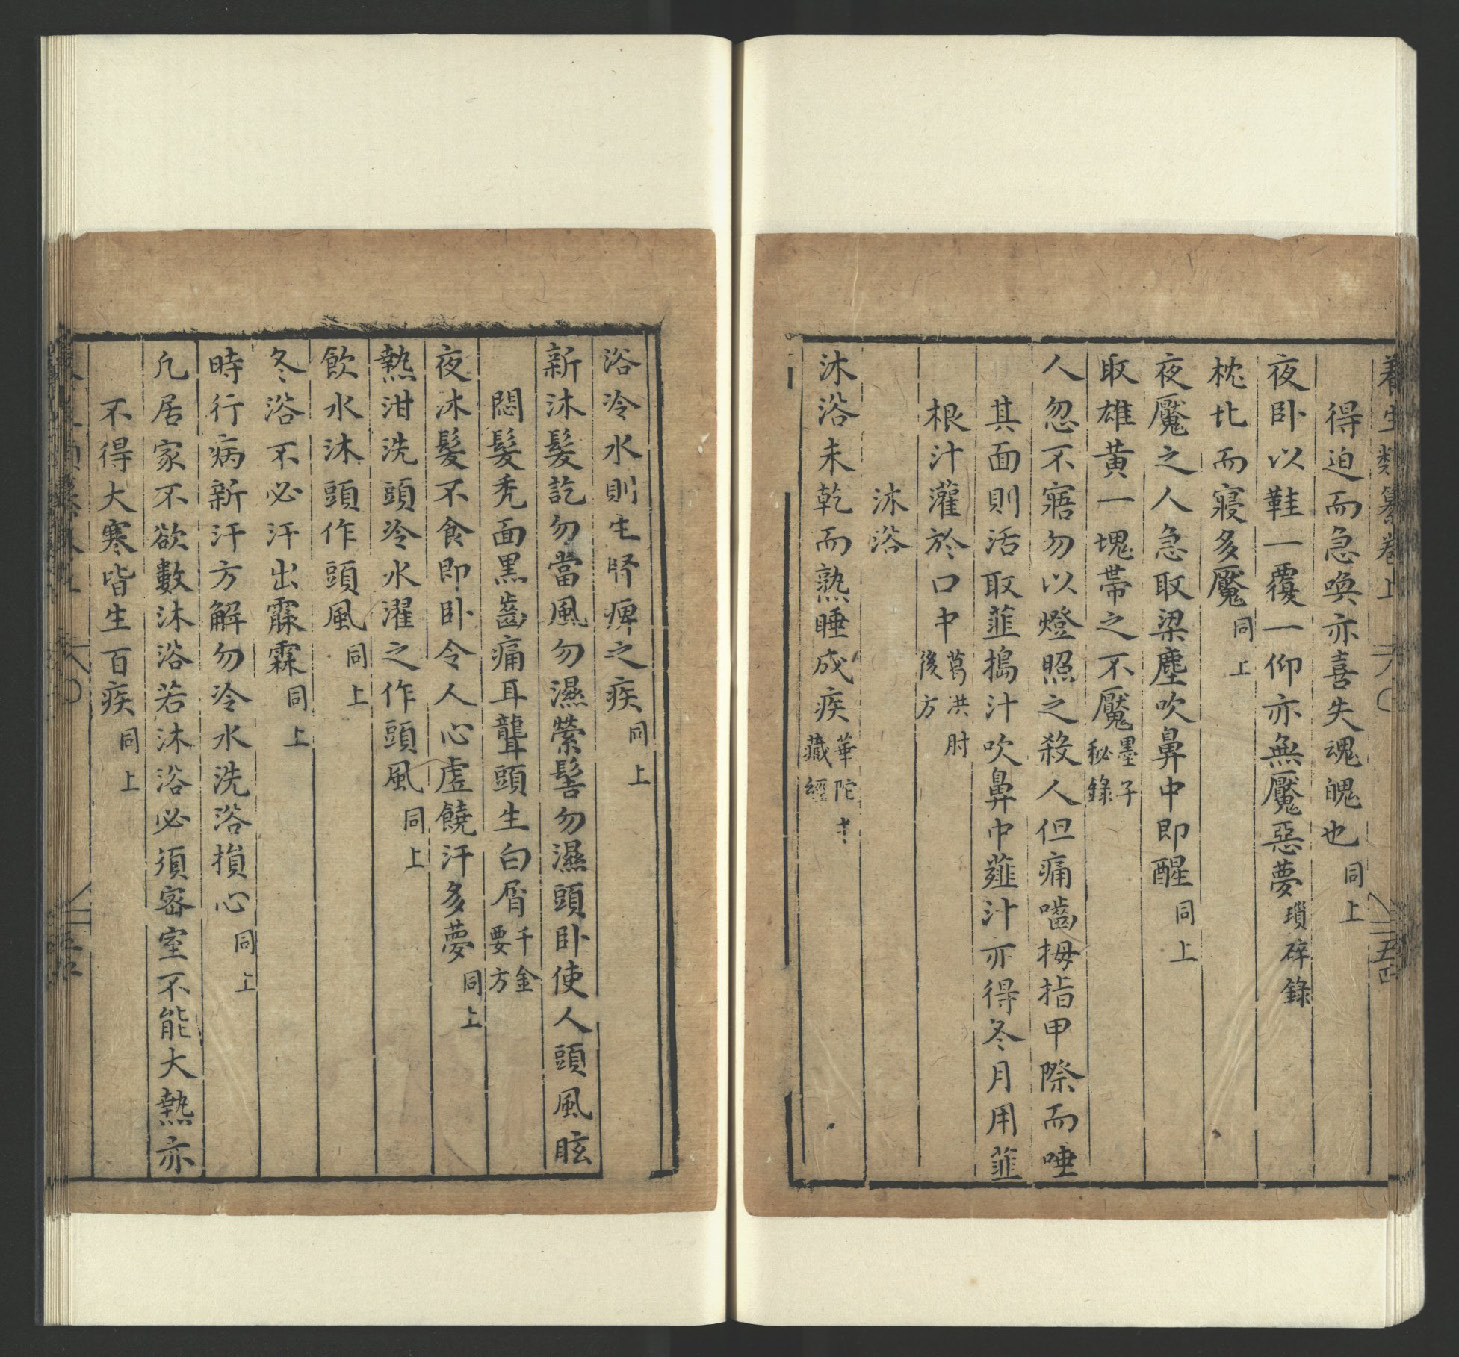 養生類纂卷上 五古
得迫而急喚亦喜失魂魄也同上
夜卧以鞋一覆一仰亦無魘惡夢瑣碎錄
枕北而寢多魘同上
夜魘之人急取梁塵吹鼻中即醒同上
取雄黄一塊帶之不魘墨子秘錄
人忽不寤勿以燈照之殺人但痛嚙拇指甲際而唾
其面則活取韮搗汁吹鼻中薤汁亦得冬月用韮
根汁灌於口中葛洪肘後方
沐浴
沐浴未乾而熟睡成疾華陀中藏經
浴冷水則生腎痺之疾同上
新沐髮訖勿當風勿濕縈髻勿濕頭卧使人頭風眩
悶髮禿面黑齒痛耳聾頭生白屑千金要方
夜沐髮不食即卧令人心虛饒汗多夢同上
熱泔洗頭冷水濯之作頭風同上
飲水沐頭作頭風同上
冬浴不必汗出霢霖同上
時行病新汗方解勿冷水洗浴損心同上
凡居家不欲數沐浴若沐浴必須密室不能大熱亦
不得大寒皆生百疾同上